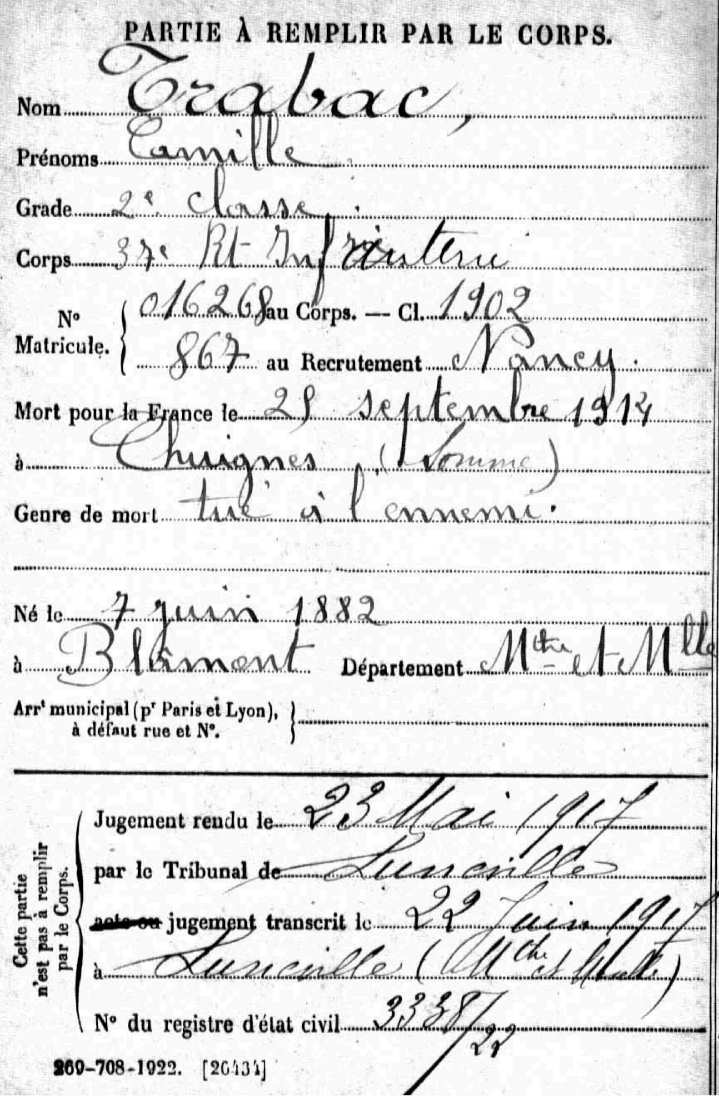 PARTIE À REMPLIR PAR LE CORPS.
Nom Trabac,
Prénoms Camille
Grade 2e classe.
Corps 37e Rt Infanterie
No Matricule. { 016268 au Corps. — Cl. 1902
867 au Recrutement Nancy.
Mort pour la France le 25 septembre 1914
à Chuignes (Somme)
Genre de mort tué à l'ennemi.
Né le 7 juin 1882
à Blâmont Département Mthe et Mlle
Arrt municipal (pr Paris et Lyon),
à défaut rue et No.
Cette partie n'est pas à remplir par le Corps.
Jugement rendu le 23 Mai 1917
par le Tribunal de Lunéville
acte ou jugement transcrit le 22 Juin 1917
à Lunéville (Mthe et Mlle)
No du registre d'état civil 3338/22
269-708-1922. [26434]